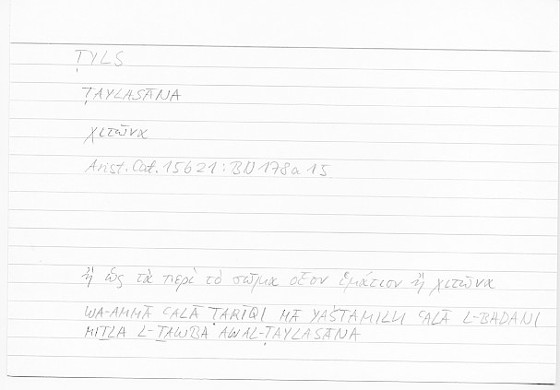 ṬYLS
ṬAYLASĀNA
χιτῶνα
Arist. Cat. 15b21 : BD 178a15
ἢ ὡς τὰ περὶ τὸ σῶμα οἷον ἱμάτιον ἢ χιτῶνα
WA-AMMĀ ʿALĀ ṬARĪQI MĀ YAŠTAMILU ʿALĀ L-BADANI
MIṮLA L-ṮAWBA AW AL-ṬAYLASĀNA